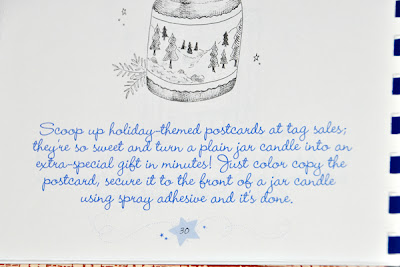 Scoop up holiday-themed postcards at tag sales;
they're so sweet and turn a plain jar candle into an
extra-special gift in minutes! Just color copy the
postcard, secure it to the front of a jar candle
using spray adhesive and it's done.
30